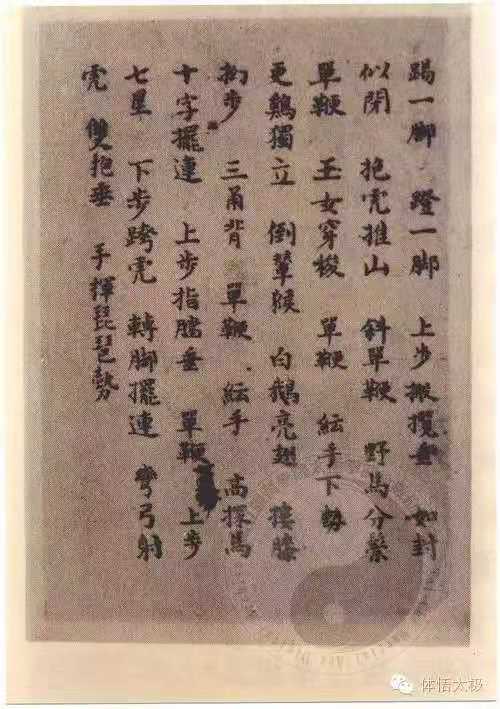 踢一脚 蹬一脚 上步搬攬垂 如封
似閉 抱虎推山 斜單鞭 野馬分鬃
單鞭 玉女穿梭 單鞭 紜手下勢
更鷄獨立 倒輦猴 白鵝亮翅 摟膝
拗步 三甬背 單鞭 紜手 高探馬
十字擺連 上步指膅垂 單鞭 上步
七星 下步跨虎 轉脚擺連 彎弓射
虎 雙抱垂 手揮琵琶勢
体悟太极